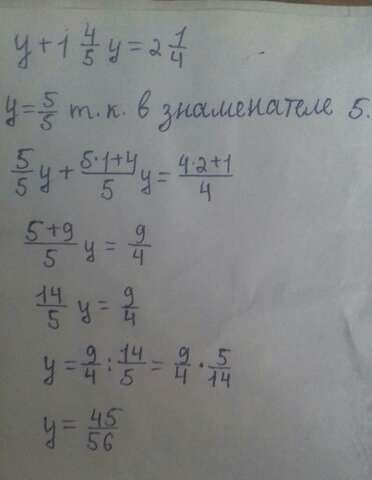 y + 1 4/5 y = 2 1/4
y = 5/5 т.к. в знаменателе 5.
5/5 y + (5·1+4)/5 y = (4·2+1)/4
(5+9)/5 y = 9/4
14/5 y = 9/4
y = 9/4 : 14/5 = 9/4 · 5/14
y = 45/56